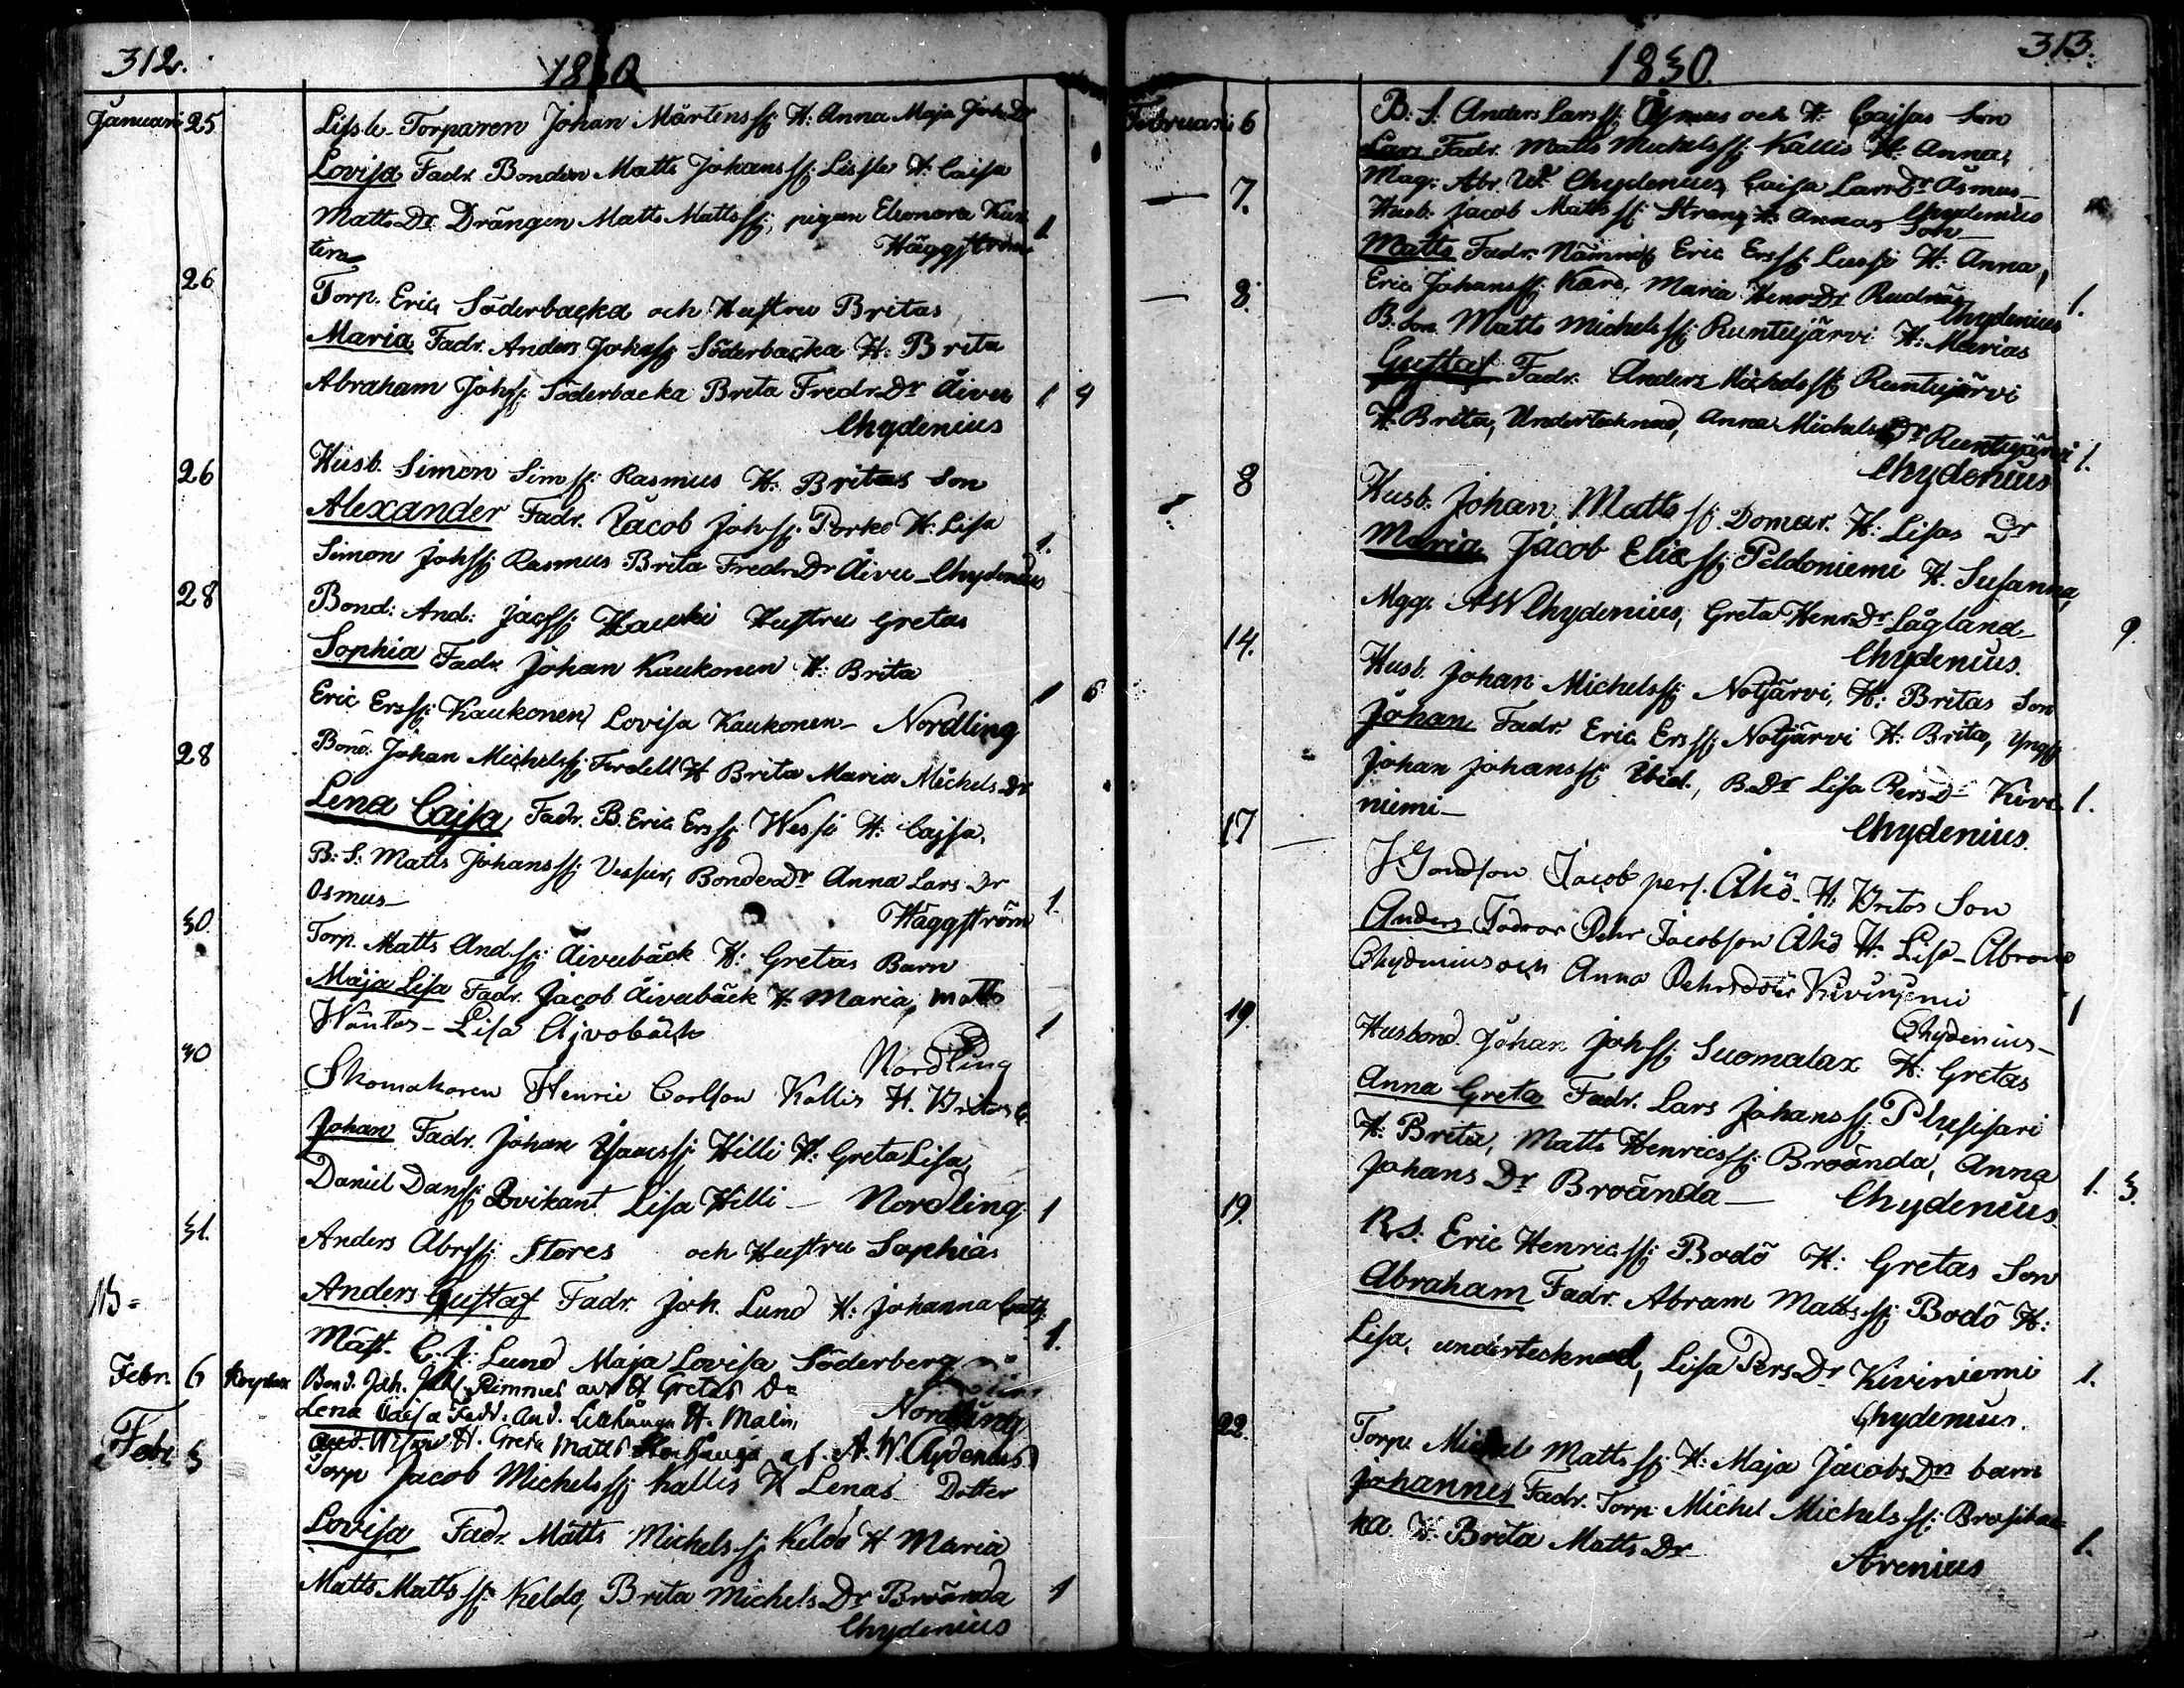 312.
1830
Januari 25 Lissle-Torparen Johan Mårtensss: H: Anna Maja Joh: Dr
Lovisa Fadr. Bonden Matts Johansss: Lissle H: Caisa
Matts Dr. Drängen Matts Mattsss: pigan Eleonora 1.
Häggström
26 Torp. Eric Söderbacka och Hustru Britas
Maria Fadr. Anders Johsss: Söderbacka H: Brita
Abraham Johss: Söderbacka Brita Fredr. Dr Åivu 1 4
Chydenius
26 Husb. Simon Simss: Rasmus H: Britas Son
Alexander Fadr. Jacob Johss: Porko H: Lisa
Simon Johss: Rasmus Brita Fredr. Dr Åivu - Chydenius 1.
28 Bond: And: Jacss: Hauki Hustru Gretas
Sophia Fadr. Johan Kaukonen H: Brita
Eric Ersss: Kaukonen Lovisa Kaukonen - Nordling 1 6
28 Bond. Johan Michelsss: Ferdell H Brita Maria Michels Dr
Lena Cajsa Fadr. B. Eric Ersss: Wessi H: Cajsa,
B: S: Matts Johansss: Bonde Dr Anna Lars Dr
Osmus - Häggström 1.
30. Torp. Matts Andss: Åivubäck H: Gretas Barn
Maja Lisa Fadr. Jacob Åivubäck H: Maria, Matts
Wäntas - Lisa Åjvobäck 1
Nordling
30 Skomakaren Henric Carlson Kallis H. Britas
Johan Fadr. Johan Isacsss: Hilli H: Greta Lisa,
Daniel Danss: Qvikant Lisa Hilli - Nordling 1
31. Anders Abrss: Stores och Hustru Sophias
Anders Gustaf Fadr. Joh. Lund H: Johanna Cath:
Mäst. C. J. Lund Maja Lovisa Söderberg 1.
Nordling
Febr. 6 Bond. Joh. H Gretas Dr
Lena Caisa Fadd. And. Lillhauga H. Malin,
H. Greta Matts Storhauga af A. W. Chydenius
Febr. 5 Torp Jacob Michelsss: Kallis H Lenas Dotter
Lovisa Fadr. Matts Michelsss: Keldo H Maria
Matts Mattsss: Keldo, Brita Michels Dr Broända 1
Chydenius
313.
1830.
Februari 6 B: S: Anders Larsss: Åsmus och H: Cajsas Son
Lars Fadr. Matts Michelsss: Kallis H: Anna,
Mag: Abr. W. Chydenius, Caisa Lars Dr Åsmus
Chydenius
7. Husb. Jacob Mattsss: Strang H: Annas Son
Matts Fadr. Nämnd: Eric Ersss: Lussi H: Anna,
Eric Johansss: Kård, Maria Henr. Dr Rudnäs 1.
Chydenius
8. B. Son Matts Michelsss: Runtujärvi H: Marias
Gustaf Fadr. Anders Michelsss: Runtujärvi
H: Brita, Undertecknad, Anna Michels Dr Runtujärvi 1.
Chydenius
8 Husb. Johan Mattsss: Domar. H: Lisas Dr
Maria, Jacob Eliass: Peldoniemi H. Susanna,
Mgg: AWChydenius, Greta Henr. Dr Lågland 9.
Chydenius.
14. Husb. Johan Michelsss: Notjärvi, H: Britas Son
Johan Fadr. Eric Ersss: Notjärvi H: Brita, Yngg:
Johan Johansss: Ibid., B. Dr Lisa Pers Dr Kivi- 1.
niemi -
Chydenius.
17 Jacob pers. Åkö. H. Britas Son
Anders, Fadrar Pehr Jacobson Åkö H. Lisa - Abram
Chydenius och Anna Pehrsdotr Kiviniemi 1
Chydenius -
19. Husbond. Johan Johss: Suomalax H: Gretas
Anna Greta Fadr. Lars Johansss: Plusisari
H: Brita, Matts Henricsss: Broända, Anna
Johans Dr Broända - Chydenius. 1. 3.
19. B. S: Eric Henricss: Bodö H: Gretas Son
Abraham Fadr. Abram Mattsss: Bodö H:
Lisa, undertecknad, Lisa Pers Dr Kiviniemi 1.
Chydenius.
22. Torp. Michel Mattsss: H: Maja Jacobs Dr barn
Johannes Fadr. Torp. Michel Michelsss: Brasibac-
ka H: Brita Matts Dr 1.
Arenius